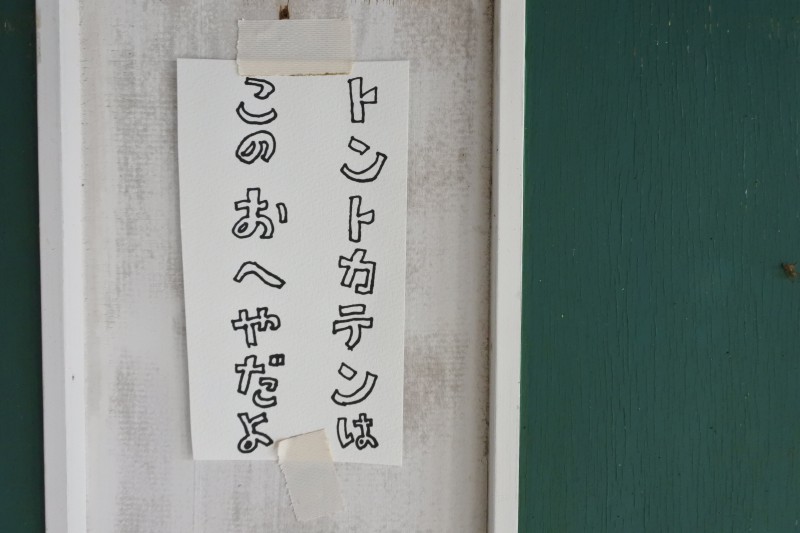 トントカテンは
このおへやだよ